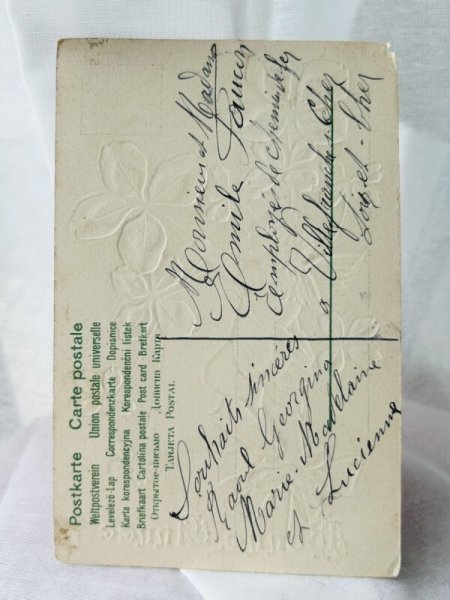 Postkarte Carte postale
Weltpostverein Union postale universelle
Levelező-Lap Correspondenzkarte Dopisnice
Karta korespondencyjna Korespondenční lístek
Briefkaart Cartolina postale Post card Brefkort
Открытое письмо Дописна Карта
TARJETA POSTAL
Souhaits sincères
Raoul Georgina
Marie-Madelaine
et Lucienne
Monsieur et Madame
Emile
Employé de chemin de fer
a Villefranche-s-Cher
Loir-et-Cher